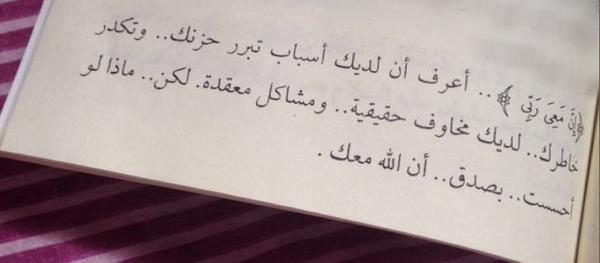 ﴿إِنَّ مَعِيَ رَبِّي﴾.. أعرف أن لديك أسباب تبرر حزنك.. وتكدر
خاطرك.. لديك مخاوف حقيقية.. ومشاكل معقدة. لكن.. ماذا لو
أحسست.. بصدق.. أن الله معك .